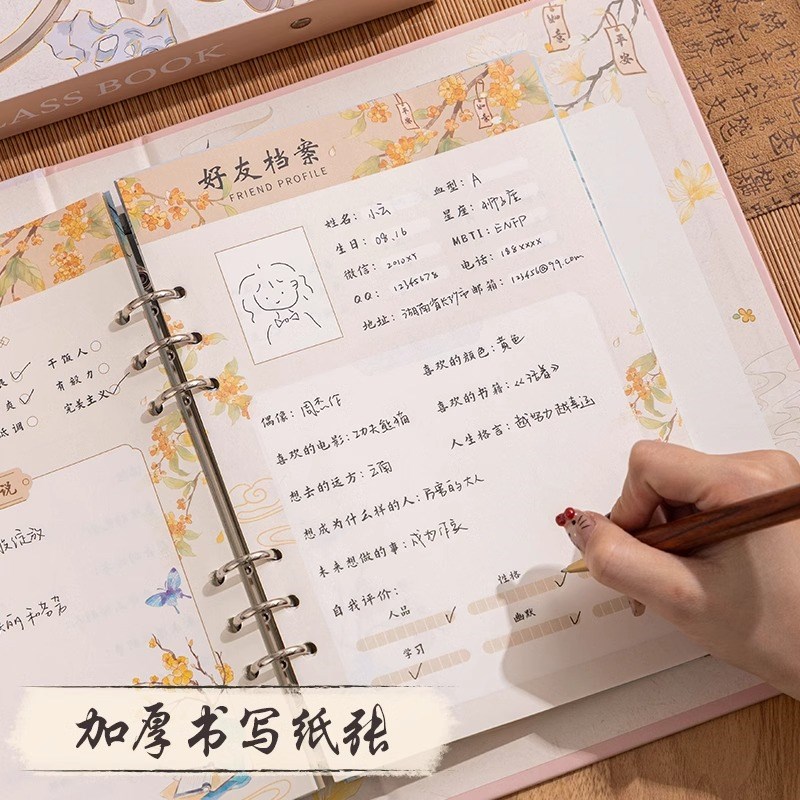 LASS BOOK
如意
平安
平安
如意
好友档案
FRIEND PROFILE
姓名：小云
血型：A
生日：08.16
星座：狮子座
微信：2010xx
MBTI：ENFP
QQ：12345678
电话：188xxxx
地址：湖南省长沙市
邮箱：123456@99.com
偶像：周杰伦
喜欢的颜色：黄色
喜欢的电影：功夫熊猫
喜欢的书籍：《活着》
想去的远方：云南
人生格言：越努力越幸运
想成为什么样的人：厉害的大人
未来想做的事：成为作家
自我评价：
人品
性格
学习
幽默
干饭人
有毅力
完美主义
低调
说
绽放
加厚书写纸张